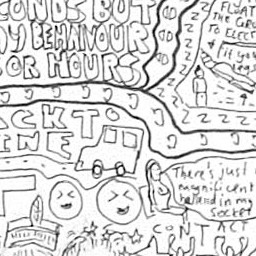 CONDS BUT
MY BEHAVIOUR
FOR HOURS
FLOAT
THE GRO
TO ELECT
& fit you
legs
ACK TO
INE
There's just
magnificent
in my
SOCKET
CONTACT